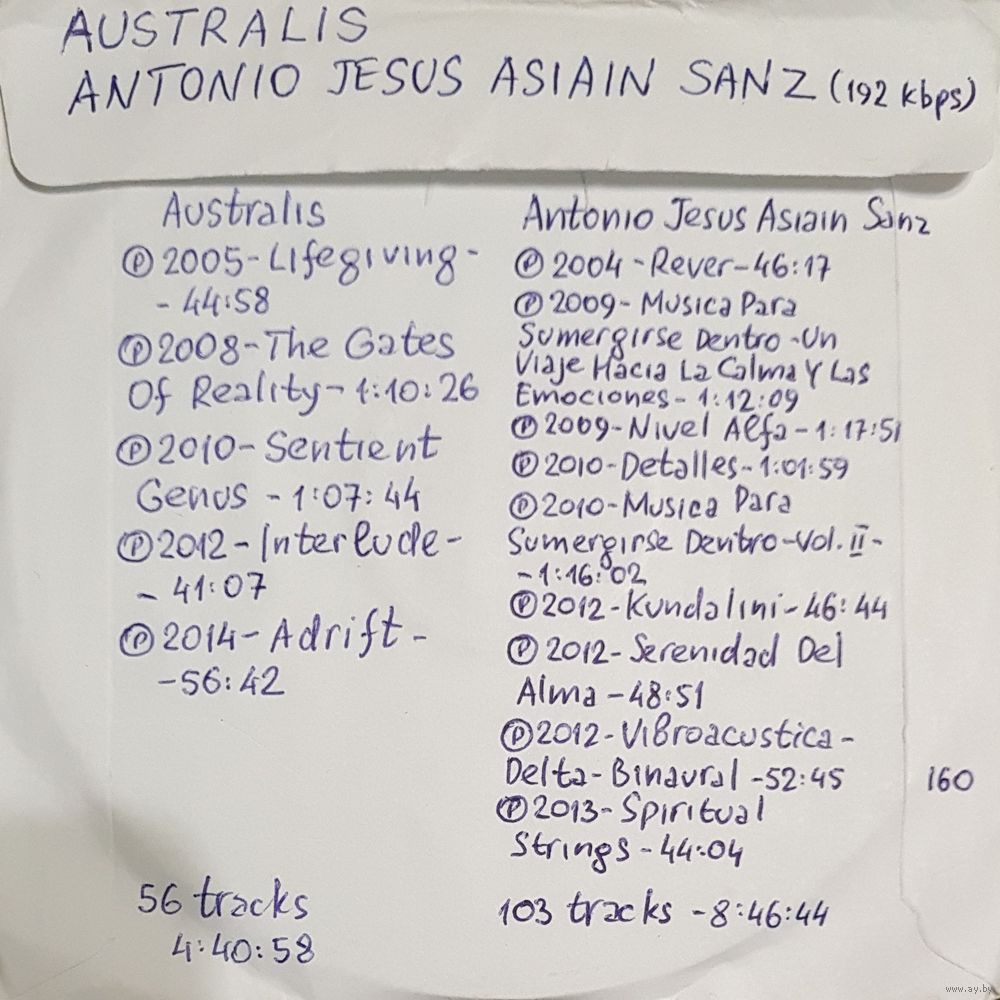 AUSTRALIS
ANTONIO JESUS ASIAIN SANZ (192 kbps)
Australis
Ⓟ 2005-Lifegiving-
- 44:58
Ⓟ 2008-The Gates
Of Reality-1:10:26
Ⓟ 2010-Sentient
Genus - 1:07:44
Ⓟ 2012-Interlude-
- 41:07
Ⓟ 2014-Adrift-
-56:42
56 tracks
4:40:58
Antonio Jesus Asiain Sanz
Ⓟ 2004-Rever-46:17
Ⓟ 2009-Musica Para
Sumergirse Dentro-Un
Viaje Hacia La Calma Y Las
Emociones-1:12:09
Ⓟ 2009-Nivel Alfa-1:17:51
Ⓟ 2010-Detalles-1:01:59
Ⓟ 2010-Musica Para
Sumergirse Dentro-Vol. II-
-1:16:02
Ⓟ 2012-Kundalini-46:44
Ⓟ 2012-Serenidad Del
Alma-48:51
Ⓟ 2012-Vibroacustica-
Delta-Binaural-52:45
Ⓟ 2013-Spiritual
Strings-44:04
103 tracks -8:46:44
160
www.ay.by